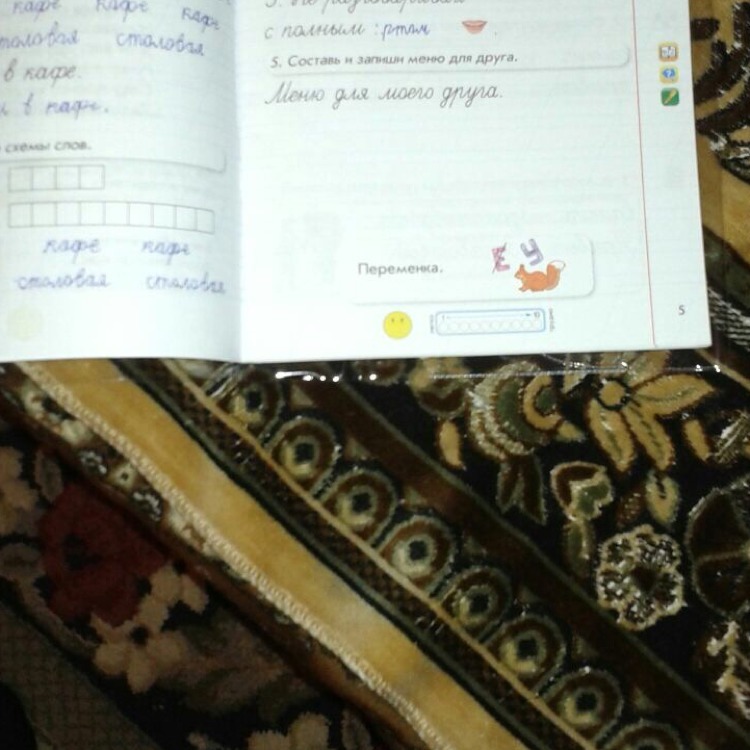 кафе кафе кафе
столовая
в кафе.
в кафе.
схемы слов.
кафе кафе
столовая столовая
с полным ртом
5. Составь и запиши меню для друга.
Меню для моего друга.
Переменка.
Е У
1 10
5